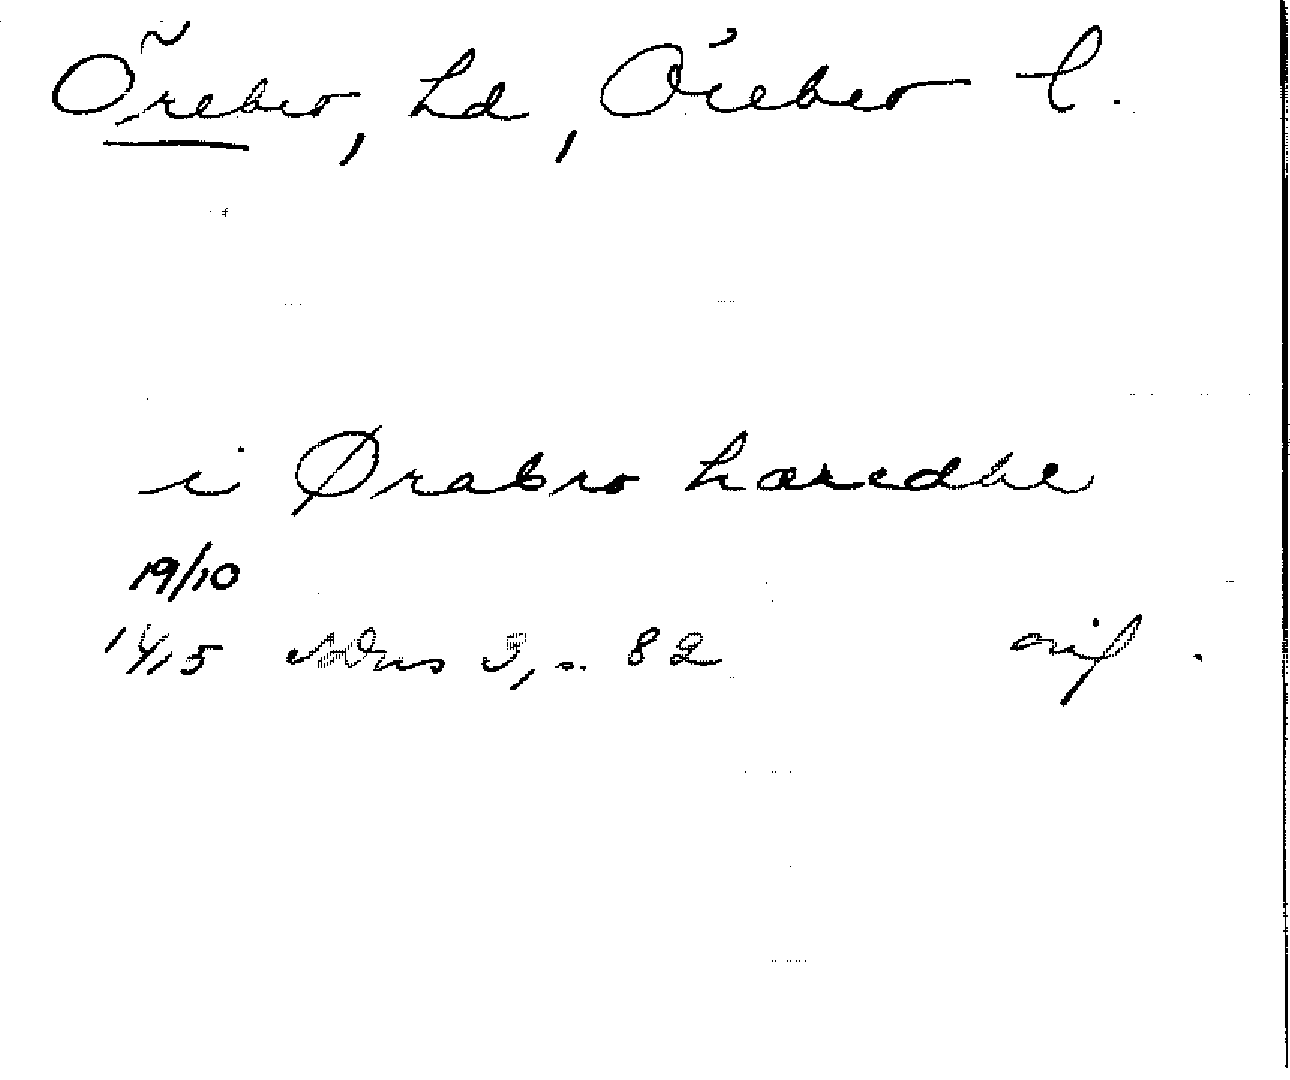 Örebro, hd, Örebro l.
i Ørabro hæredhe
19/10
1415 SDns 3, s. 82 orig.